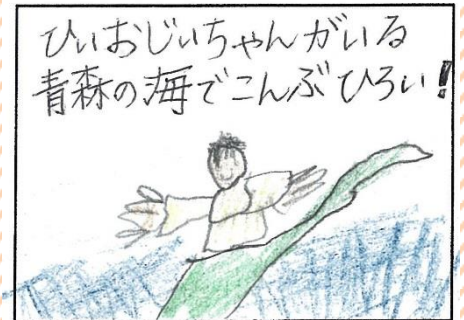 ひいおじいちゃんがいる
青森の海でこんぶひろい!